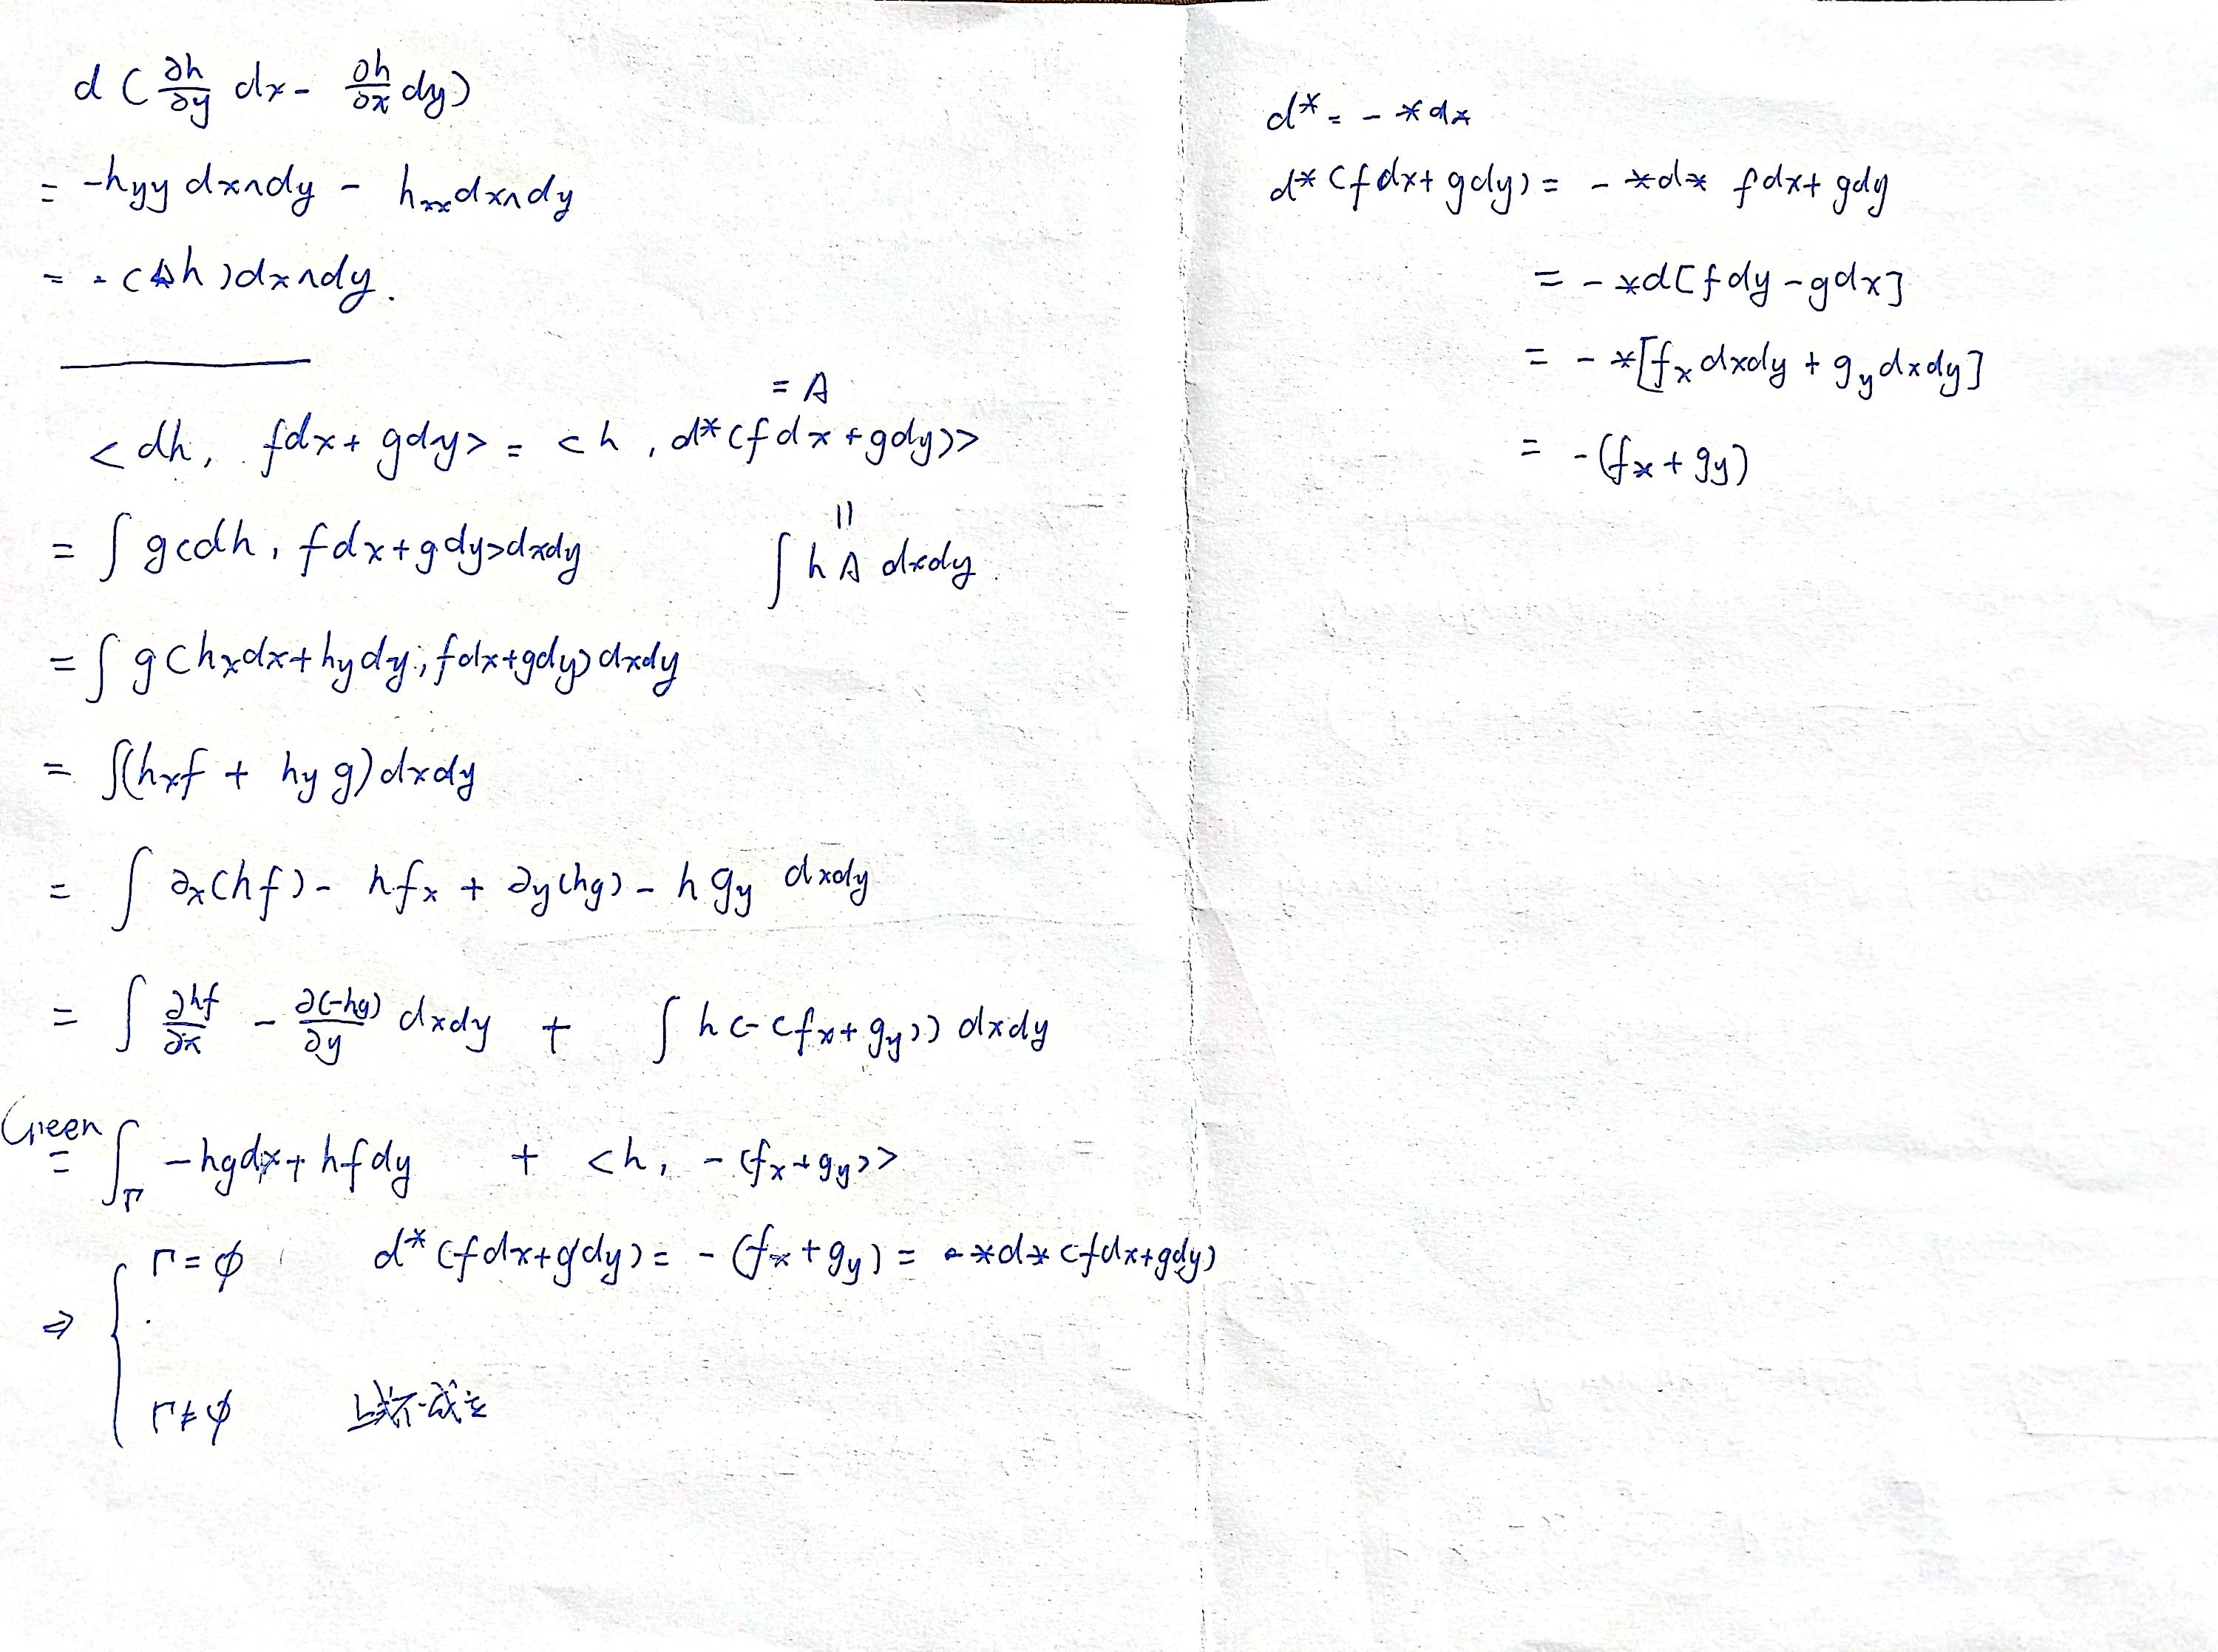 d(∂h/∂y dx - ∂h/∂x dy)
= -hyy dx∧dy - hxx dx∧dy
= -(Δh)dx∧dy.
= A
<dh, fdx+gdy> = <h, d*(fdx+gdy)>
= ∫ g(dh, fdx+gdy>dxdy
||
∫ h A dxdy.
= ∫ g(hxdx+hydy, fdx+gdy)dxdy
= ∫(hxf + hy g)dxdy
= ∫ ∂x(hf) - hfx + ∂y(hg) - hgy dxdy
= ∫ ∂hf/∂x - ∂(-hg)/∂y dxdy + ∫ h(-(fx+gy)) dxdy
Green
= ∫Γ -hgdx + hfdy + <h, -(fx+gy)>
⇒ { Γ=∅, d*(fdx+gdy) = -(fx+gy) = -*d*(fdx+gdy)
Γ≠∅ 上式不成立
d* = - *d*
d*(fdx+gdy) = - *d* fdx+gdy
= - *d[fdy-gdx]
= - *[fx dxdy + gy dxdy]
= -(fx+gy)